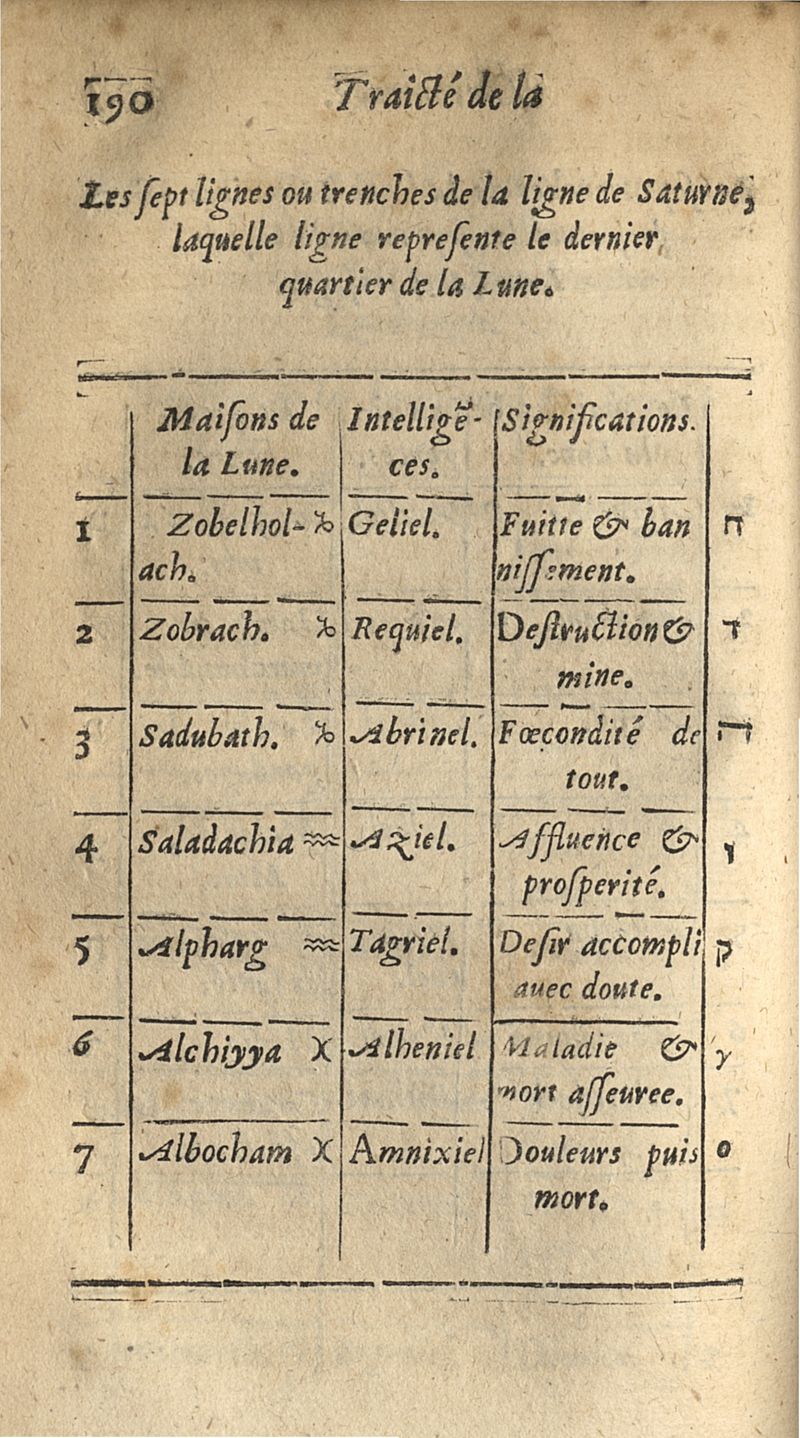 190 Traicté de la
Les sept lignes ou trenches de la ligne de Saturne,
laquelle ligne represente le dernier
quartier de la Lune.
Maisons de Intelligẽ- Significations.
la Lune. ces.
1 Zobelhol- ♑ Geliel. Fuitte & ban ח
ach. nissement.
2 Zobrach. ♑ Requiel. Destruction & ד
mine.
3 Sadubath. ♑ Abrinel. Fœcondité de
tout.
4 Saladachia ♒ Aziel. Affluence & ו
prosperité.
5 Alpharg ♒ Tagriel. Desir accompli ק
auec doute.
6 Alchiyya ♓ Alheniel Maladie & γ
mort asseuree.
7 Albocham ♓ Amnixiel Douleurs puis ο
mort.